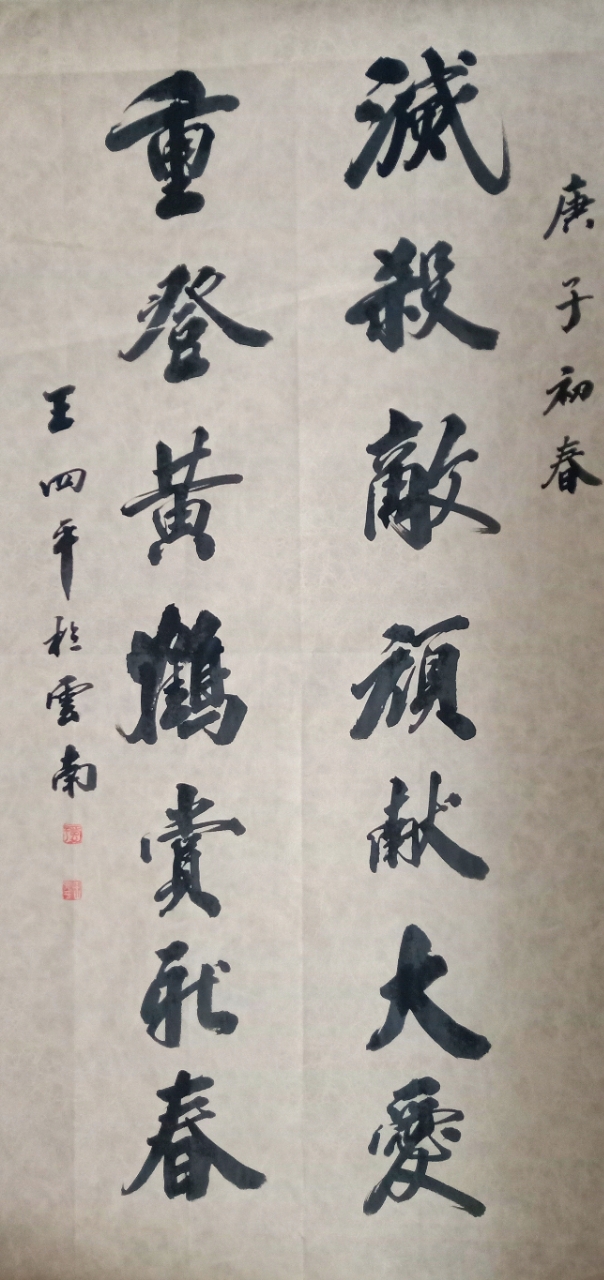 庚子初春
滅殺敵頑献大愛
重登黄鶴賞新春
王四平於雲南